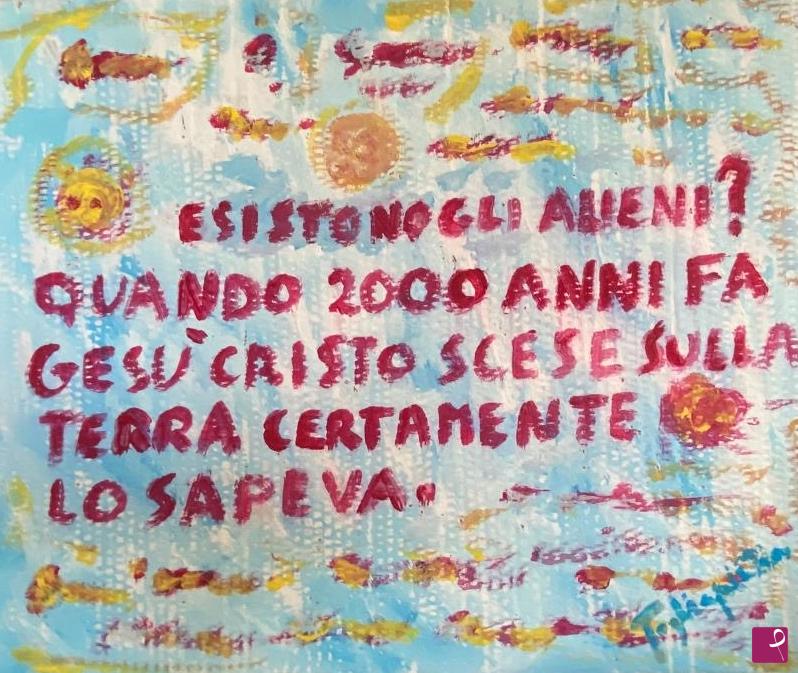 ESISTONO GLI ALIENI?
QUANDO 2000 ANNI FA
GESÙ CRISTO SCESE SULLA
TERRA CERTAMENTE
LO SAPEVA.